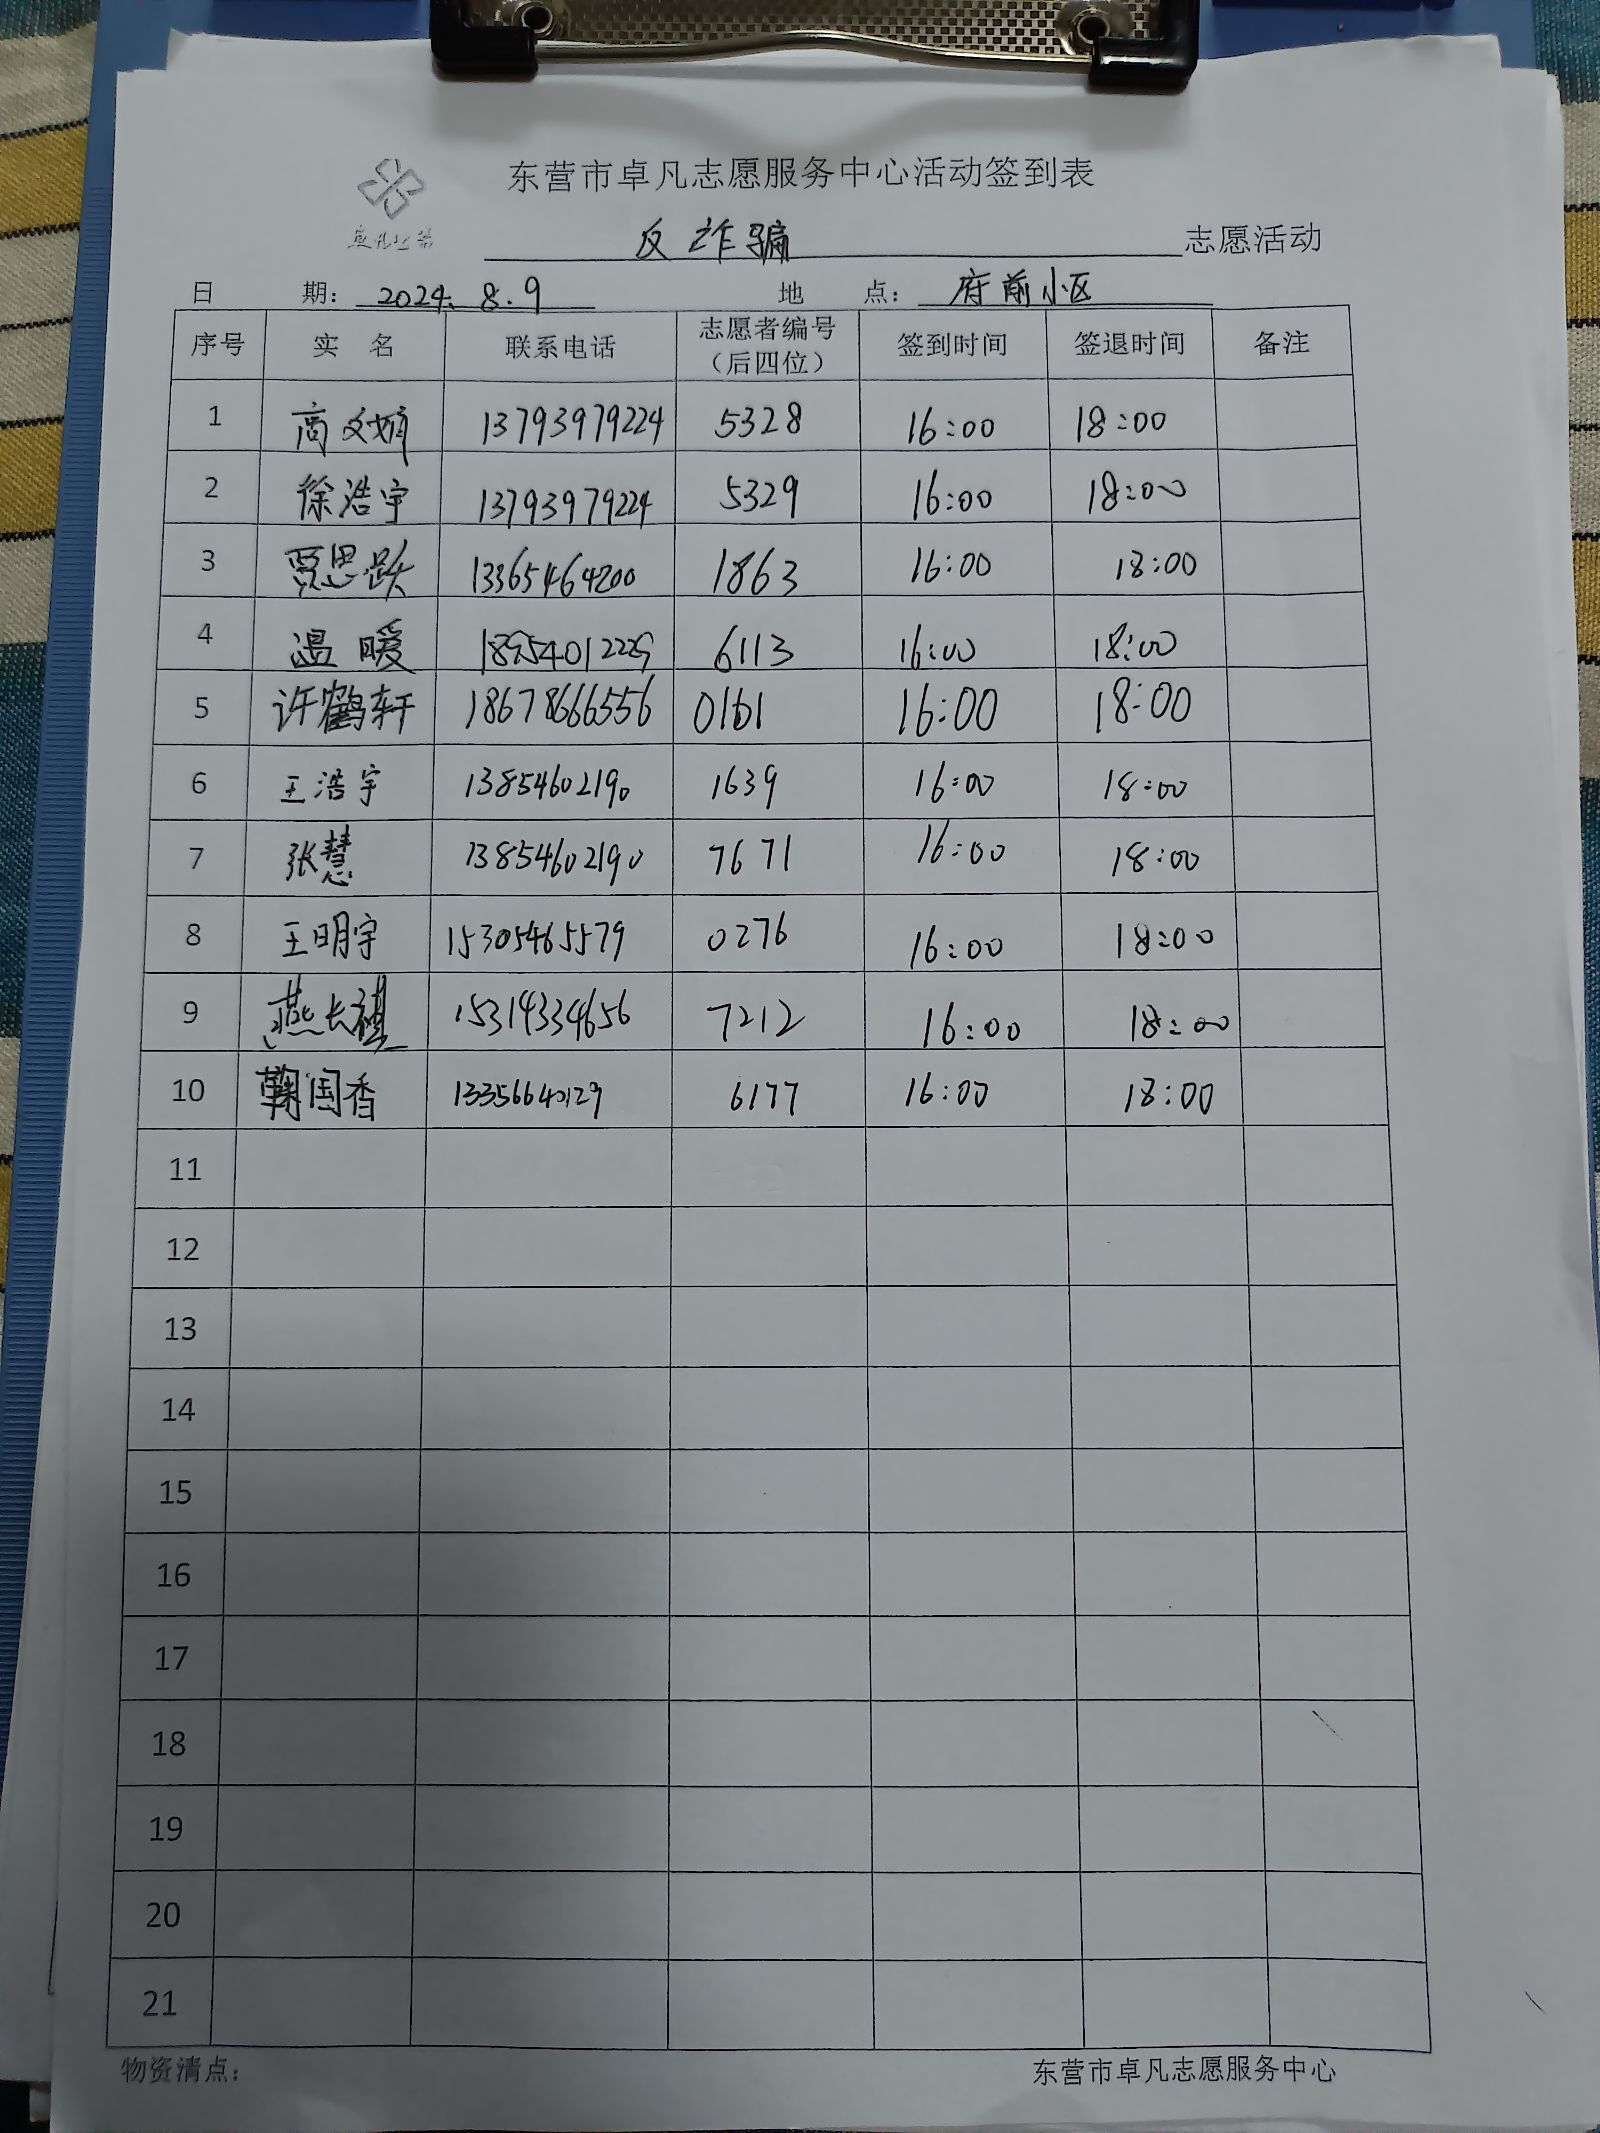 东营市卓凡志愿服务中心活动签到表
卓凡公益
反诈骗 志愿活动
日期: 2024.8.9 地点: 府前小区
序号 实名 联系电话 志愿者编号（后四位） 签到时间 签退时间 备注
1 商文娟 13793979224 5328 16:00 18:00
2 徐浩宇 13793979224 5329 16:00 18:00
3 贾思跃 13365464200 1863 16:00 18:00
4 温暖 18954012229 6113 16:00 18:00
5 许鹤轩 18678666556 0161 16:00 18:00
6 王浩宇 13854602190 1639 16:00 18:00
7 张慧 13854602190 7671 16:00 18:00
8 王明宇 15305465579 0276 16:00 18:00
9 燕长祺 15314334656 7212 16:00 18:00
10 鞠国香 13356640129 6177 16:00 18:00
11
12
13
14
15
16
17
18
19
20
21
物资清点: 东营市卓凡志愿服务中心